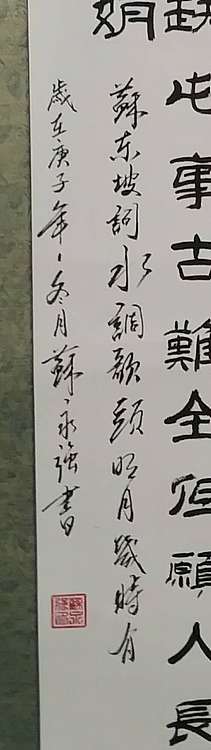 缺此事古難全但願人長
娟
蘇東坡詞水調歌頭明月幾時有
歲在庚子年冬月蘇永強書